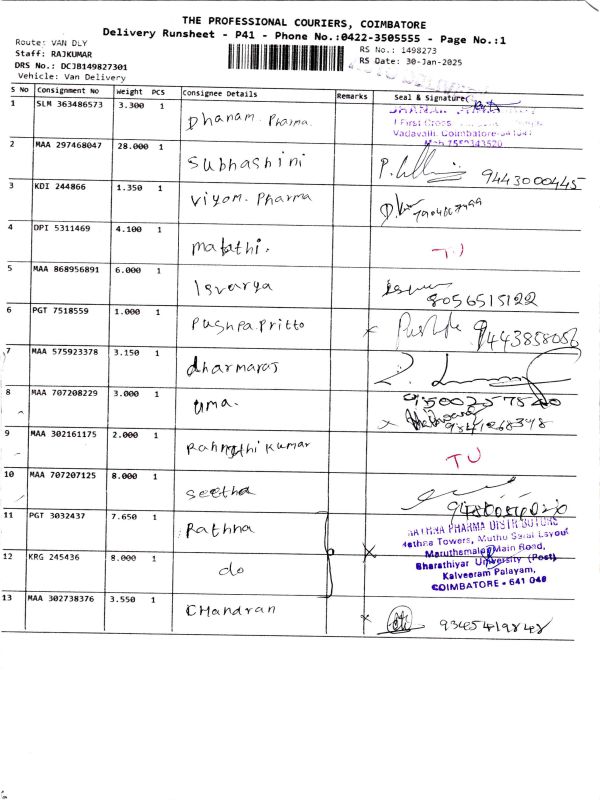 THE PROFESSIONAL COURIERS, COIMBATORE
Delivery Runsheet - P41 - Phone No.:0422-3505555 - Page No.:1
Route: VAN DLY
RS No.: 1498273
Staff: RAJKUMAR
RS Date: 30-Jan-2025
DRS No.: DCJB149827301
Vehicle: Van Delivery
S No Consignment No Weight PCS Consignee Details Remarks Seal & Signature
1 SLM 363486573 3.300 1 Dhanam. Pharma.
Vadavalli, Coimbatore-641041
2 MAA 297468047 28.000 1 Subhashini 9443000445
3 KDI 244866 1.350 1 Viyom. Pharma
4 DPI 5311469 4.100 1 TU
5 MAA 868956891 6.000 1 Isvarya
8056515122
6 PGT 7518559 1.000 1 Pushpa Pritto x 9443858056
7 MAA 575923378 3.150 1 dharmaraj
8 MAA 707208229 3.000 1 uma.
x
9 MAA 302161175 2.000 1 Kumar TU
10 MAA 707207125 8.000 1 Seetha
11 PGT 3032437 7.650 1 Rathna
RATHNA PHARMA DISTRIBUTORS
Rathna Towers, Muthu Salai Layout
Maruthamalai Main Road,
12 KRG 245436 8.000 1 do x
Bharathiyar University (Post)
Kalveeram Palayam,
COIMBATORE - 641 046
13 MAA 302738376 3.550 1 CHandran x 9345419848